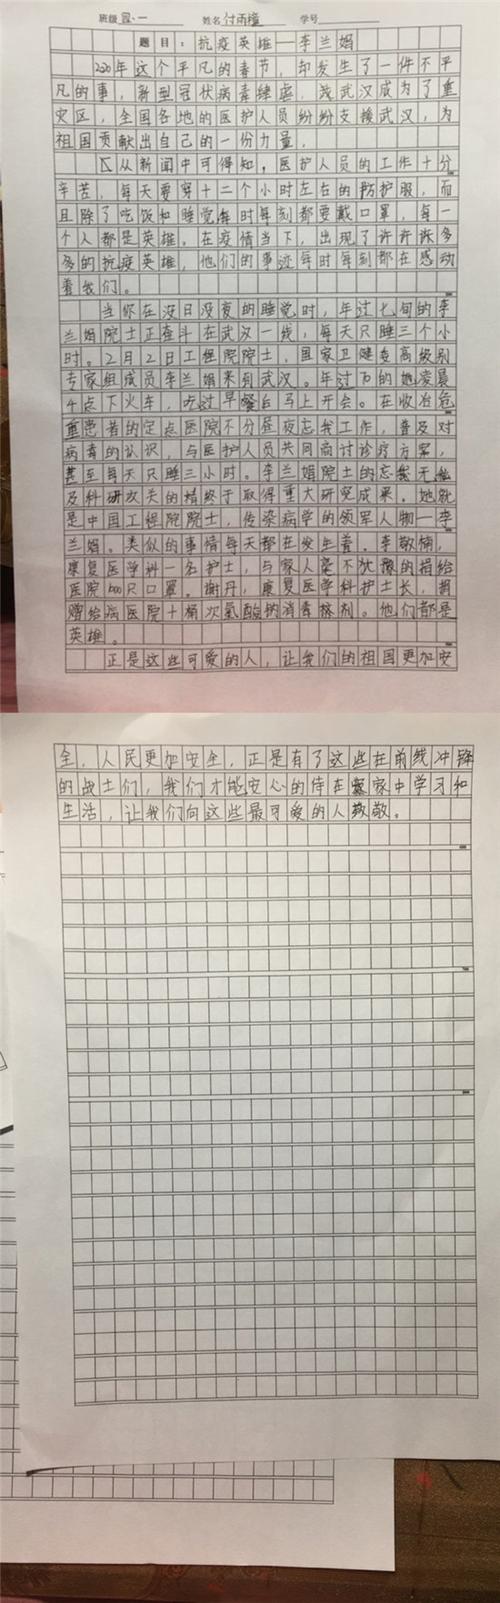 班级 四、一 姓名 付雨檀 学号
题目：抗疫英雄—李兰娟
2020年这个平凡的春节，却发生了一件不平
凡的事，新型冠状病毒肆虐，武汉成为了重
灾区，全国各地的医护人员纷纷支援武汉，为
祖国贡献出自己的一份力量。
从新闻中可得知，医护人员的工作十分
辛苦，每天要穿十二个小时左右的防护服，而
且除了吃饭和睡觉每时每刻都要戴口罩，每一
个人都是英雄。在疫情当下，出现了许许许多
多的抗疫英雄，他们的事迹每时每刻都在感动
着我们。
当你在没日没夜的睡觉时，年过七旬的李
兰娟院士正奋斗在武汉一线，每天只睡三个小
时。2月2日工程院院士，国家卫健委高级别
专家组成员李兰娟来到武汉。年过70的她凌晨
4点下火车，吃过早餐后马上开会。在收治危
重患者的定点医院不分昼夜忘我工作，普及对
病毒的认识，与医护人员共同商讨诊疗方案，
甚至每天只睡三小时。李兰娟院士的忘我无私
及科研攻关的精终于取得重大研究成果。她就
是中国工程院院士，传染病学的领军人物—李
兰娟。类似的事情每天都在发生着。李敬楠，
康复医学科一名护士，与家人毫不犹豫的捐给
医院 只口罩。谢丹，康复医学科护士长，捐
赠给病医院十桶次氯酸钠消毒 剂。他们都是
英雄。
正是这些可爱的人，让我们的祖国更加安
全，人民更加安全，正是有了这些在前线冲锋
的战士们，我们才能安心的待在家中学习和
生活，让我们向这些最可爱的人致敬。